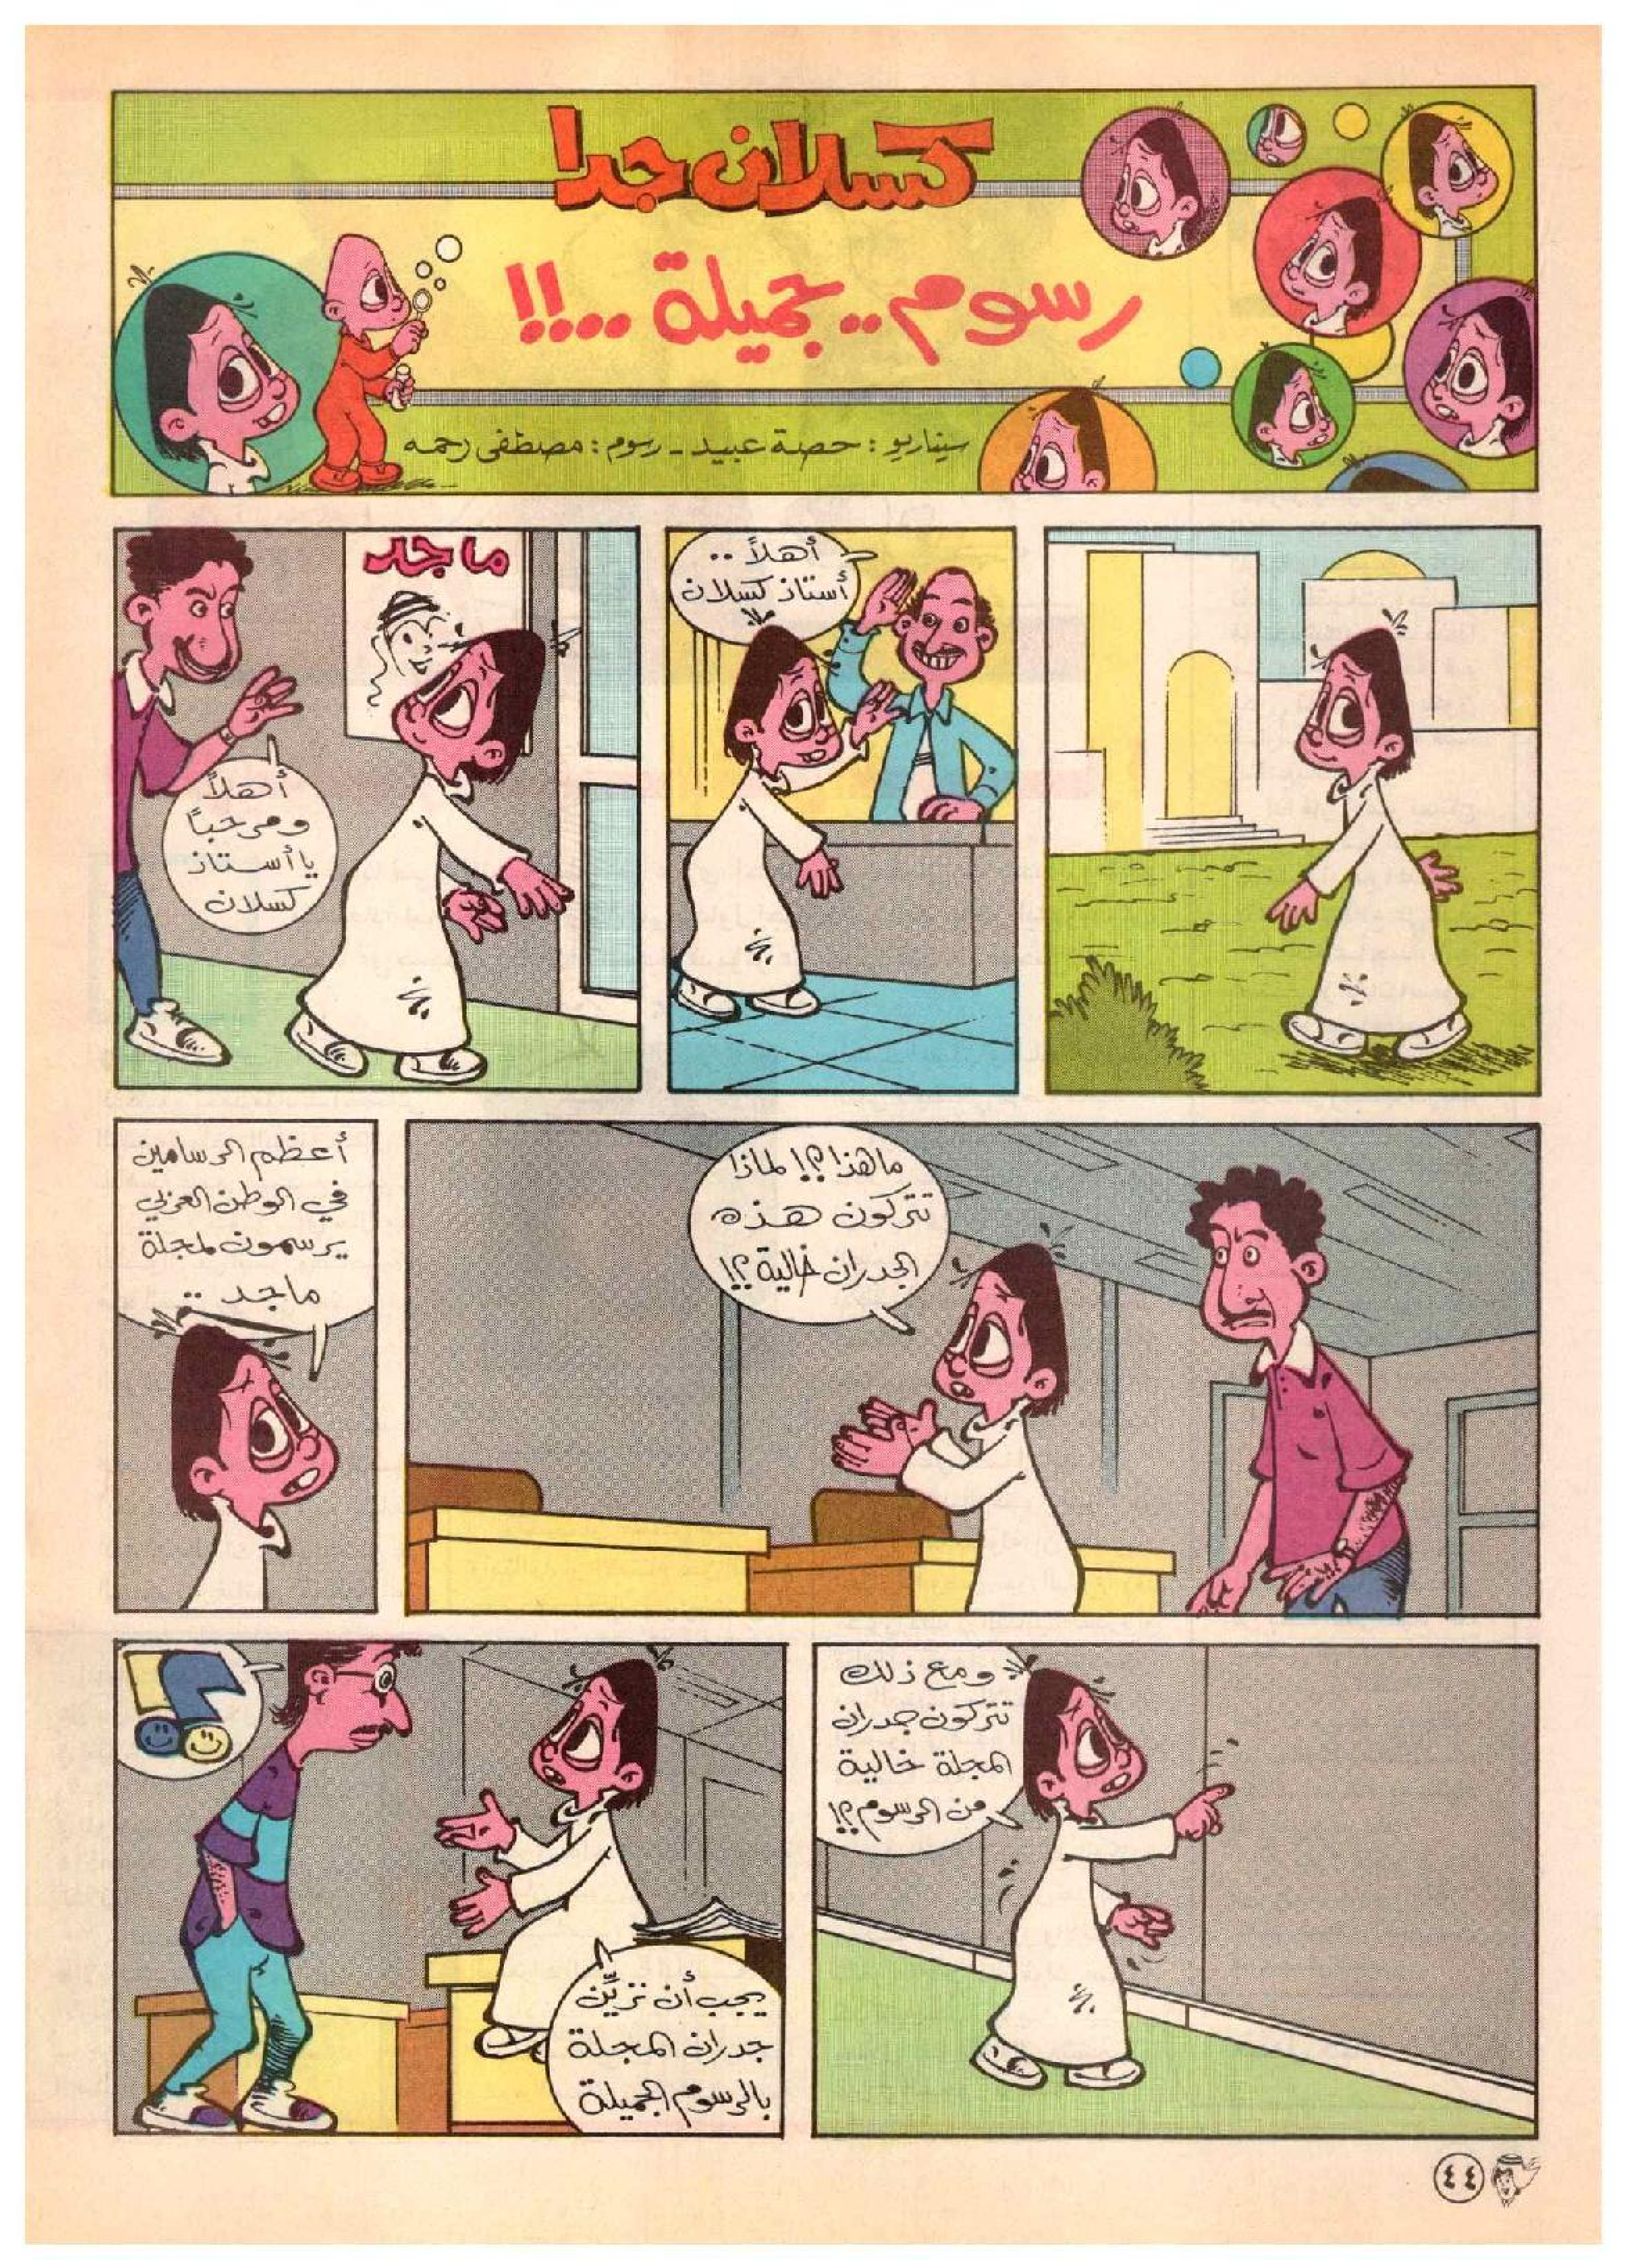 كسلان جدا
رسوم .. جميلة ..!!
سيناريو : حصة عبيد - رسوم : مصطفى رحمه
أهلاً ..
أستاذ كسلان
ماجد
أهلاً
ومرحباً
يا أستاذ
كسلان
ما هذا ؟! لماذا
تتركون هذه
الجدران خالية ؟!
أعظم الرسامين
في الوطن العربي
يرسمون لمجلة
ماجد ..
ومع ذلك
تتركون جدران
المجلة خالية
من الرسوم ؟!
؟!
يجب أن تزيِّن
جدران المجلة
بالرسوم الجميلة
٤٤